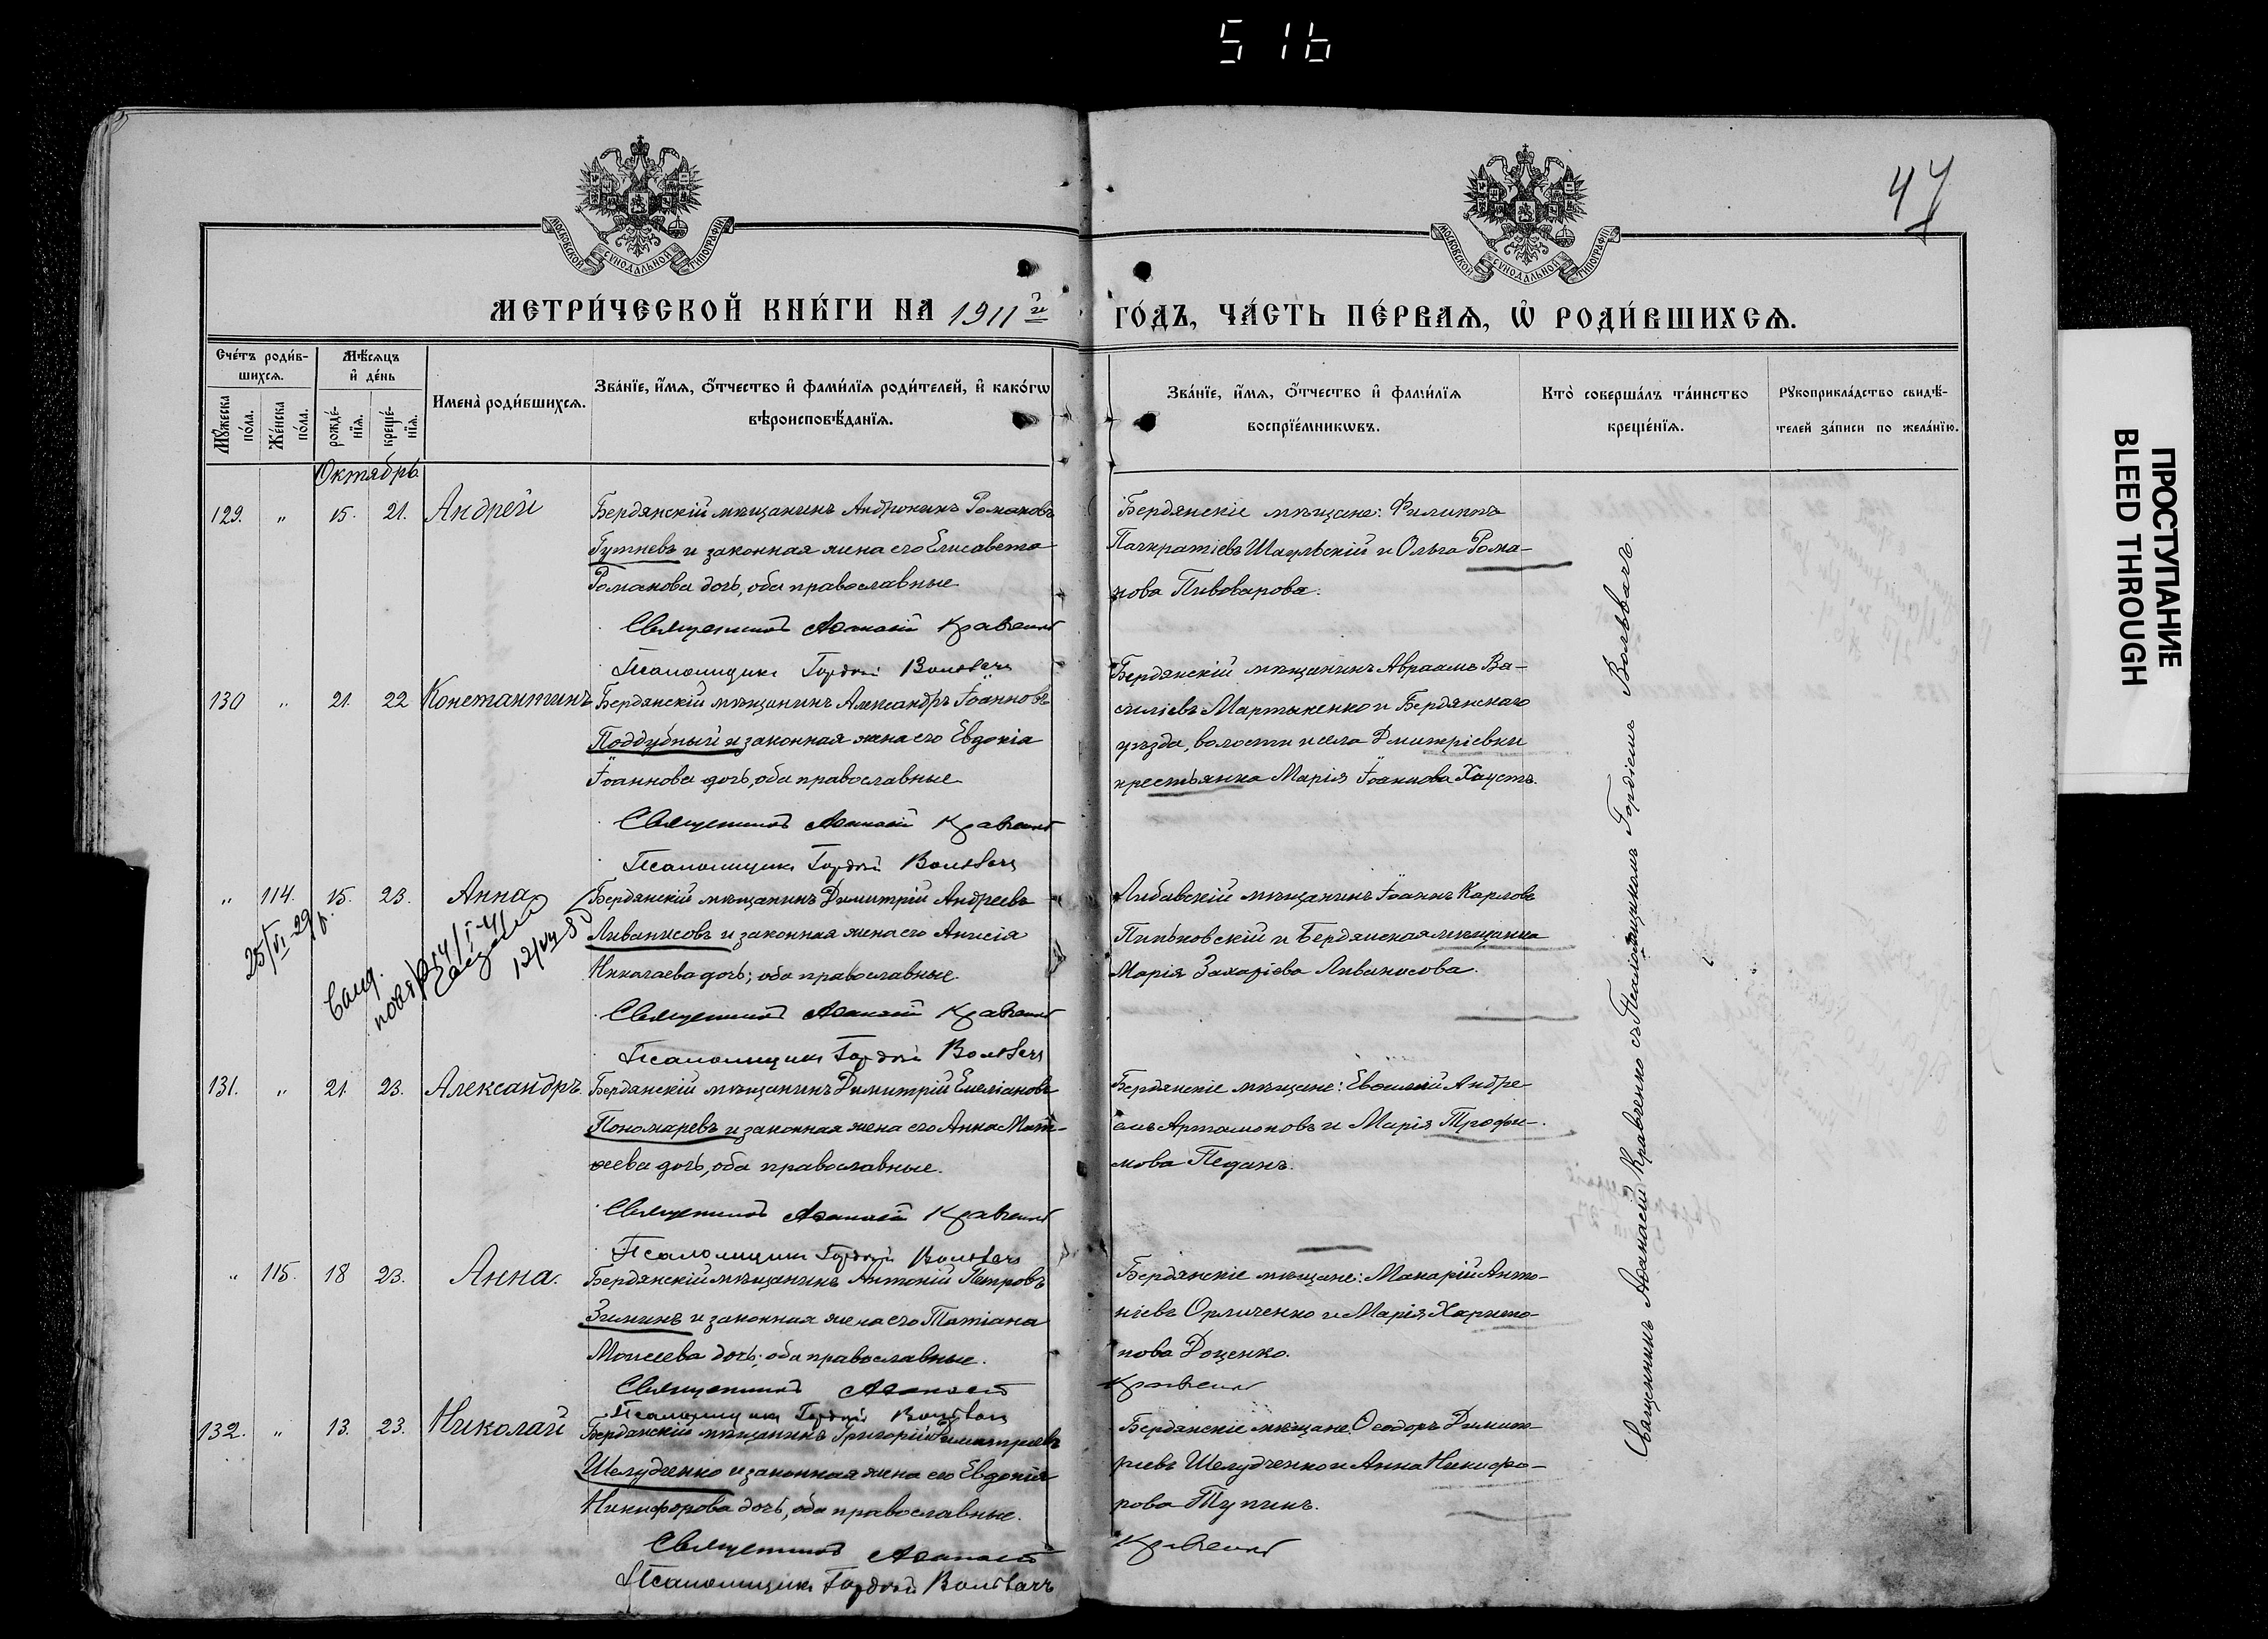 516
47
МОСКОВСКОЙ СУНОДАЛЬНОЙ ТИПОГРАФІИ
МОСКОВСКОЙ СУНОДАЛЬНОЙ ТИПОГРАФІИ
МЕТРИ́ЧЕСКОЙ КНИ́ГИ НА 1911й
ГО́ДЪ, ЧА́СТЬ ПЕ́РВАѦ, Ѡ҆ РОДИ́ВШИХСѦ.
Сче́тъ роди́в-
шихсѧ.
Мꙋ́жеска по́ла.
Же́нска по́ла.
Мѣ́сѧцъ
и҆ де́нь
рожде́-
нїѧ.
креще́-
нїѧ.
Имена̀ роди́вшихсѧ.
Зва́нїе, и҆́мѧ, ѻ҆́тчество и҆ фами́лїѧ роди́телей, и҆ како́гѡ
вѣроисповѣ́данїѧ.
Зва́нїе, и҆́мѧ, ѻ҆́тчество и҆ фами́лїѧ
воспрїе́мникѡвъ.
Кто̀ соверша́лъ та́инство
креще́нїѧ.
Рꙋкоприкла́дство свидѣ́-
телей за́писи по жела́нїю.
Октябрь.
129. " 15. 21. Андрей
Бердянскій мѣщанинъ Андроникъ Романовъ
Гутневъ и законная жена его Елисавета
Романова дочь, оба православные
Священникъ Аѳанасій Кравченко
Псаломщикъ Гордій Вольвачъ
Бердянскіе мѣщане: Филиппъ
Панкратіевъ Шаульскій и Ольга Рома-
нова Пивоварова.
130 " 21. 22 Константинъ
Бердянскій мѣщанинъ Александръ Іоанновъ
Поддубный и законная жена его Евдокія
Іоаннова дочь, оба православные
Священникъ Аѳанасій Кравченко
Псаломщикъ Гордій Вольвачъ
Бердянскій мѣщанинъ Авраамъ Ва-
силіевъ Мартыненко и Бердянскаго
уѣзда, волости и села Дмитріевки
крестьянка Марія Іоаннова Хаустъ.
" 114. 15. 23. Анна
25/VI-29 г.
12/VII
Бердянскій мѣщанинъ Димитрій Андреевъ
Ливанисовъ и законная жена его Анисія
Николаева дочь; оба православные
Священникъ Аѳанасій Кравченко
Псаломщикъ Гордій Вольвачъ
Либавскій мѣщанинъ Іоаннъ Карловъ
Пиньковскій и Бердянская мѣщанка
Марія Захаріева Ливаносова.
131. " 21. 23. Александръ.
Бердянскій мѣщанинъ Димитрій Емеліановъ
Пономаревъ и законная жена его Анна Мат-
ѳеева дочь, оба православные.
Священникъ Аѳанасій Кравченко
Псаломщикъ Гордій Вольвачъ
Бердянскіе мѣщане: Евѳимій Андре-
евъ Артамоновъ и Марія Трофи-
мова Педанъ.
" 115. 18 23. Анна.
Бердянскій мѣщанинъ Антоній Петровъ
Зининъ и законная жена его Татіана
Моисеева дочь; оба православные.
Священникъ Аѳанасій
Псаломщикъ Гордій Вольвачъ
Бердянскіе мѣщане: Макарій Анто-
ніевъ Орличенко и Марія Харито-
нова Доценко.
Кравченко
132. " 13. 23. Николай
Бердянскій мѣщанинъ Григорій Димитріевъ
Шелудченко и законная жена его Евдокія
Никифорова дочь, оба православные.
Священникъ Аѳанасій
Псаломщикъ Гордій Вольвачъ
Бердянскіе мѣщане Ѳеодоръ Димит-
ріевъ Шелудченко и Анна Никифо-
рова Тупикъ.
Кравченко
Священникъ Аѳанасій Кравченко съ Псаломщикомъ Гордіемъ Вольвачъ.
ПРОСТУПАНИЕ
BLEED THROUGH